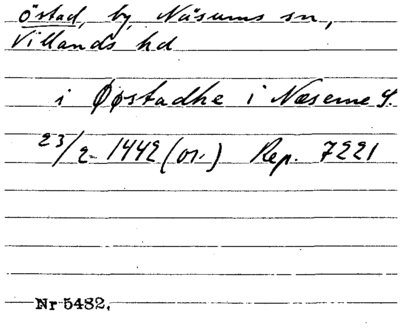 Östad, by, Näsums sn,
Villands hd
i Øøstadhe i Næseme S.
23/2 1442 (or.) Rep. 7221
Nr 5482.